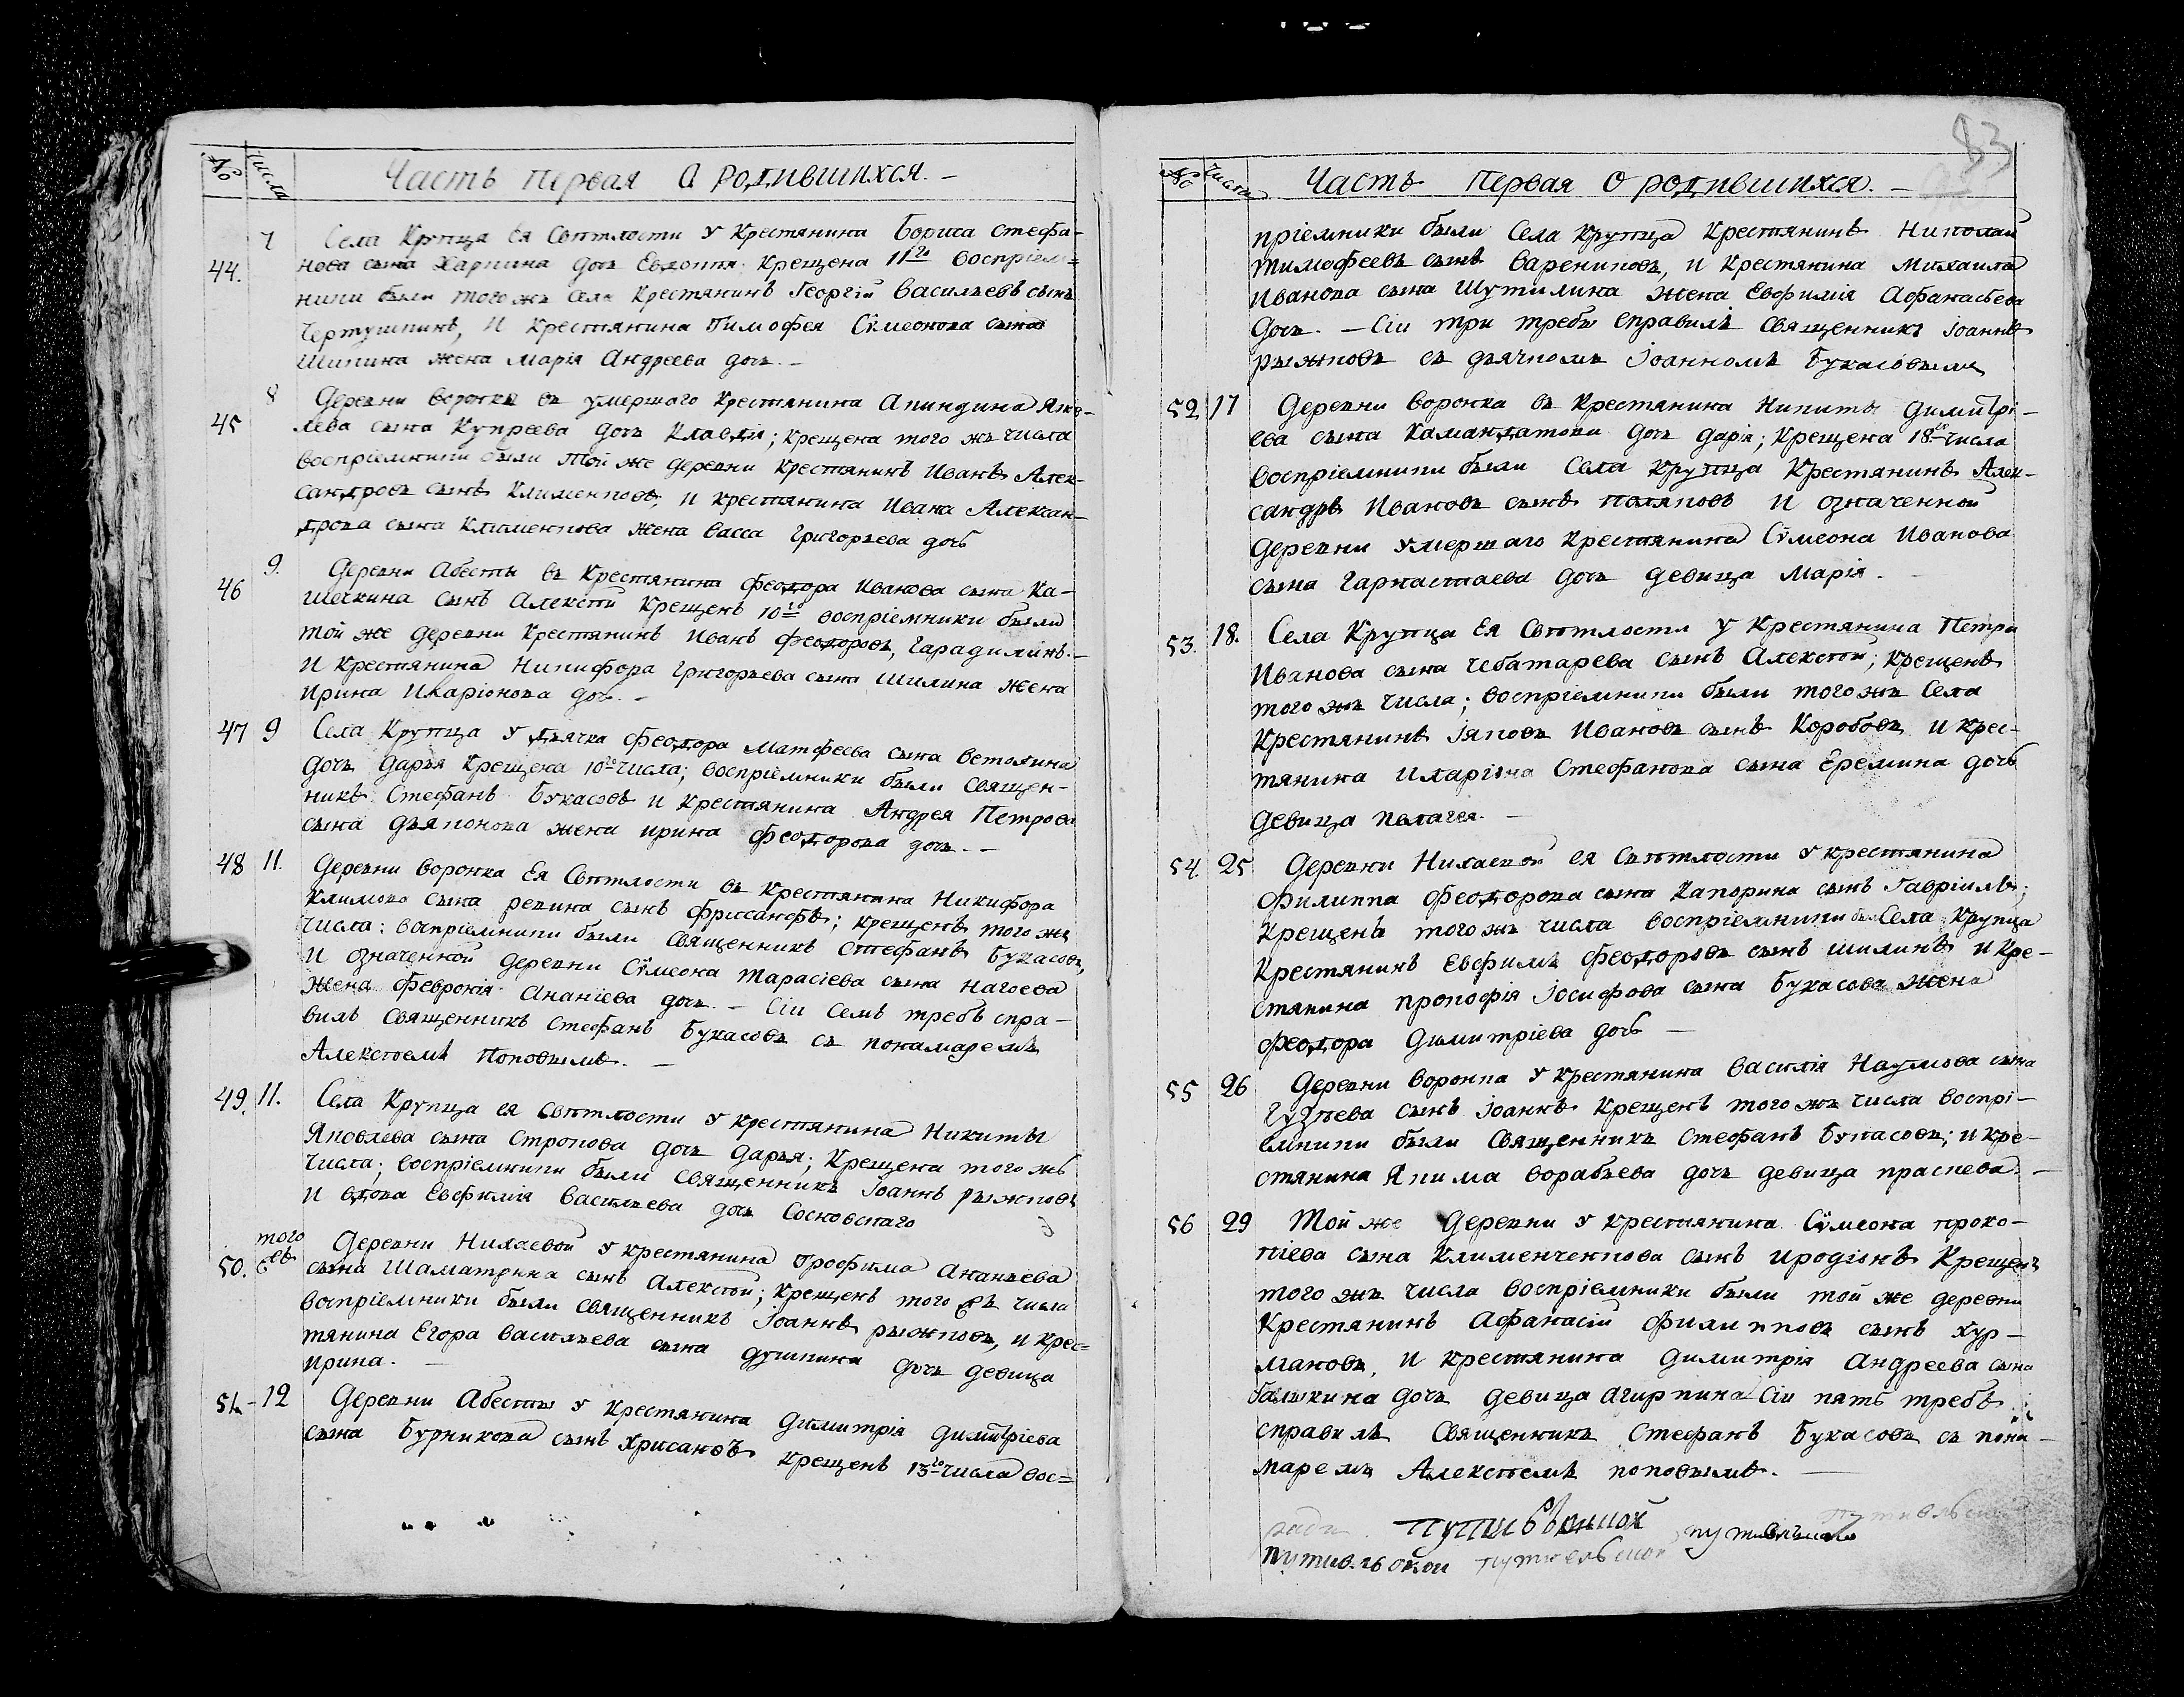 № числа
Часть первая О родившихся. -
44. 7 Села Крупца Ея Свѣтлости у Крестянина Бориса Стефа-
нова сына Харпина дочь Евдокія. Крещена 11го Воспріем=
ники были того жъ Села Крестянинъ Георгій Васильевъ сынъ
Чертушкинъ, И Крестянина Тимофея Сѵмеонова сына
Шипина жена Марія Андреева дочь. -
45 8 Деревни Воронка въ умершаго Крестянина Акиндина Яко-
лева сына Купреева дочь Клавдія; Крещена того жъ числа
воспріемники были той же деревни Крестянинъ Иванъ Алек-
сандровъ сынъ Клименковъ, И крестянина Ивана Алексан-
дрова сына Клименкова жена Васса Григорьева дочь
46 9. Деревни Абесты въ Крестянина Феодора Иванова сына Ка-
шекина сынъ Алексѣй Крещенъ 10го воспріемники были
той же деревни Крестянинъ Иванъ Феодоровъ, Гарадилинъ. -
И Крестянина Никифора Григорьева сына Шилина Жена
Ирина Иларіонова дочь. -
47 9 Села Крупца у дьячка Феодора Матфеева сына Ветолина
дочь дарья Крещена 10го числа; воспріемники были Священ-
никъ Стефанъ Букасовъ и Крестянина Андрея Петрова
сына дьяконова жена ирина Феодорова дочь. -
48 11. Деревни Воронка Ея Свѣтлости въ Крестянина Никифора
Климова сына ревина сынъ Фрисанфъ; Крещенъ того жъ
числа: воспріемники были Священникъ Стефанъ Букасовъ,
И означенной деревни Сѵмеона Тарасіева сына нагоева
Жена Февронія Ананіева дочь. - Сіи Семь требъ спра-
вилъ Священникъ Стефанъ Букасовъ съ понамаремъ
Алексѣемъ Поповымъ. -
49. 11. Села Крупца ея Свѣтлости у крестянина Никиты
Яковлева сына Строкова дочь дарья; Крещена того жъ
числа; воспріемники были Священникъ Іоаннъ рыжковъ
И вдова Евфимія Васильева дочь Сосновскаго
50. того жъ Деревни Нихаевой у крестянина Трофима Ананьева
сына Шаматрина сынъ Алексѣй; Крещенъ того жъ числа
воспріемники были Священникъ Іоаннъ рыжковъ, и крес=
тянина Егора Васильева сына душкина дочь девица
ирина. -
51. - 12 Деревни Абесты у Крестянина димитрія димитріева
сына Бурникова сынъ Хрисанфъ Крещенъ 13го числа вос=
83
№ числа
Часть Первая О родившихся. -
пріемники были Села Крупца Крестянинъ Николай
Тимофеевъ сынъ Варениковъ, и Крестянина Михаила
Иванова сына Шутилина жена Евфимія Афанасьева
дочь. - Сіи три требы справилъ Священникъ Іоаннъ
рыжковъ съ дьячкомъ Іоанномъ Букасовымъ
52 17 Деревни Воронка въ Крестянина Никиты димитрі-
ева сына Камандатова дочь дарія; Крещена 18го числа
воспріемники были Села Крупца Крестянинъ Алек-
сандръ Ивановъ сынъ поляковъ И означенной
деревни умершаго Крестянина Сѵмеона Иванова
сына Гарнастаева дочь девица Марія.
53. 18. Села Крупца Ея Свѣтлости у Крестянина Петра
Иванова сына Чебатарева сынъ Алексѣй; Крещенъ
того жъ числа; воспріемники были того жъ Села
Крестянинъ Іаковъ Ивановъ сынъ Коробовъ, и крес-
тянина иларіона Стефанова сына Еремина дочь
девица пелагея. -
54. 25 Деревни Нихаевой ея Свѣтлости у крестянина
филиппа феодорова сына Капорина сынъ Гавріилъ;
Крещенъ того жъ числа воспріемники были Села Крупца
Крестянинъ Евфимъ феодоровъ сынъ шилинъ и кре-
стянина прокофія Іосифова сына Букасова жена
феодора димитріева дочь -
55 26 Деревни воронка у крестянина Василія Наумова сына
Гузѣева сынъ Іоаннъ Крещенъ того жъ числа воспрі-
емники были Священникъ Стефанъ Букасовъ; и кре-
стянина Якима ворабьева дочь девица праскева. -
56 29 Той же деревни у крестянина Сѵмеона проко-
піева сына Клименченкова сынъ иродіонъ Крещенъ
того жъ числа воспріемники были той же деревни
Крестянинъ Афанасій филипповъ сынъ Хур-
мановъ, И крестянина димитрія Андреева сына
балыкина дочь девица агирпина Сіи пять требъ
справилъ Священникъ Стефанъ Букасовъ съ пона-
маремъ Алексѣемъ поповымъ. -